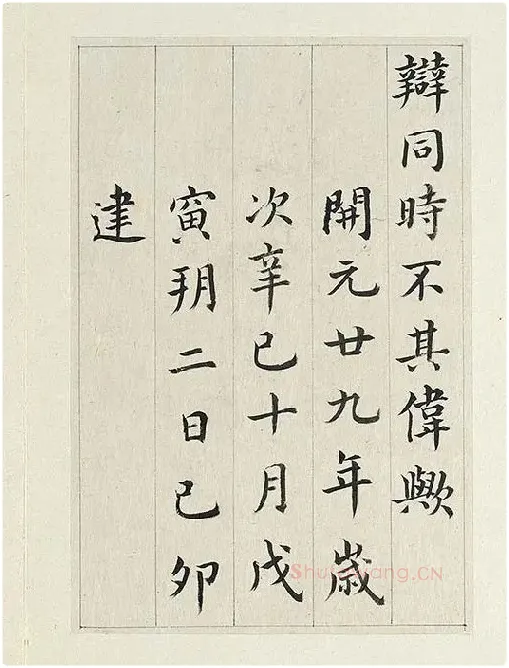 辯同時不其偉歟
開元廿九年歲
次辛巳十月戊
寅朔二日己卯
建
Shufawang.CN